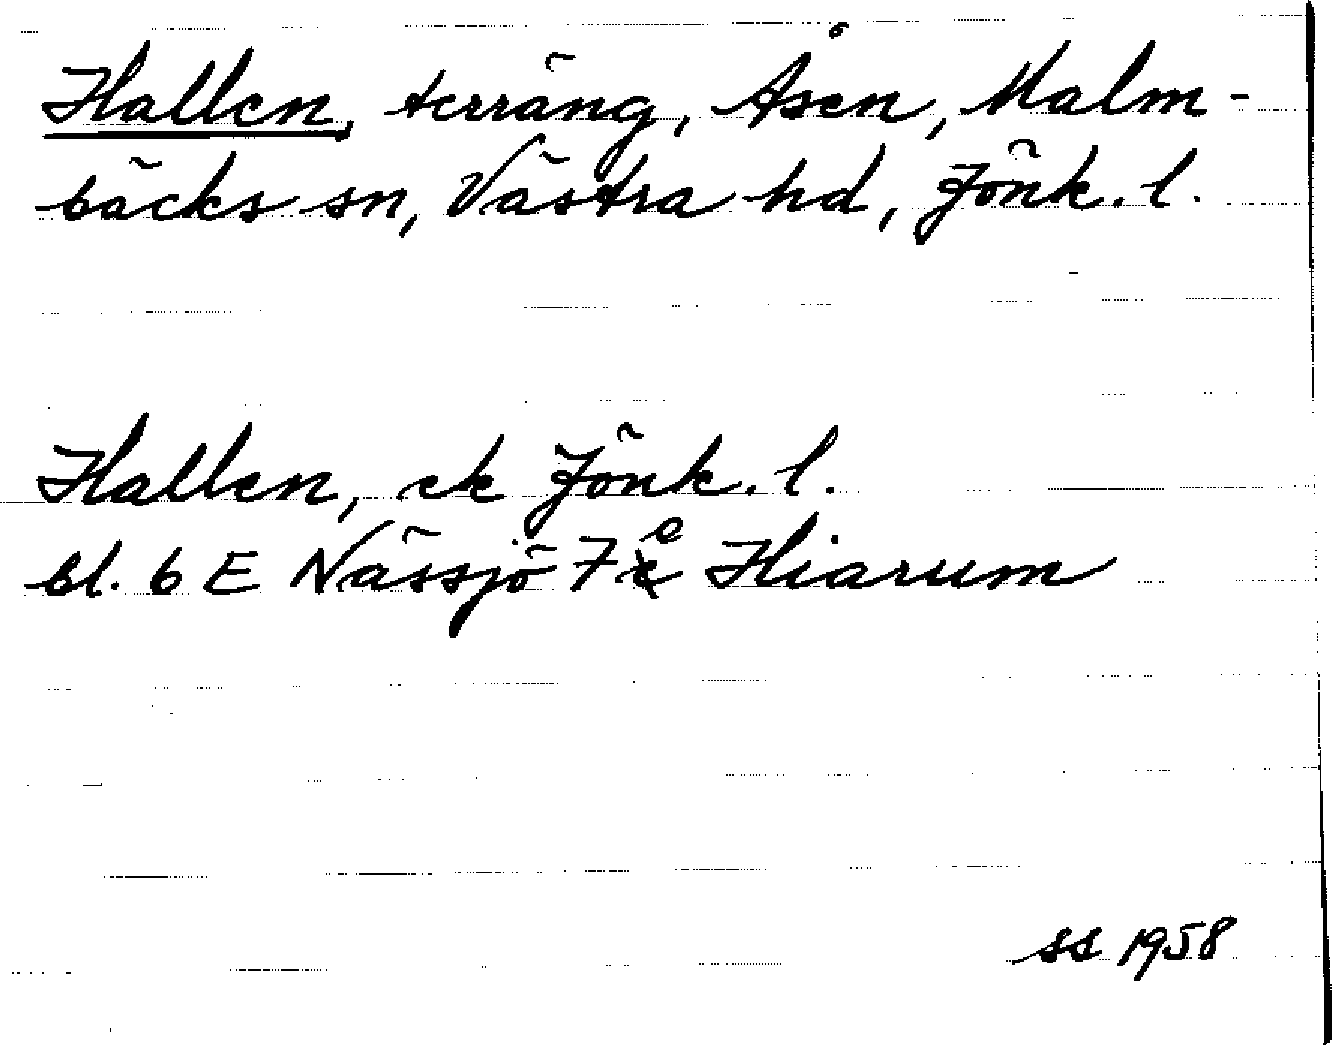 Hallen, terräng, Åsen, Malm-
bäcks sn, Västra hd, Jönk. l.
Hallen, ek Jönk. l.
bl. 6 E Nässjö 7e Hiarum
SS 1958